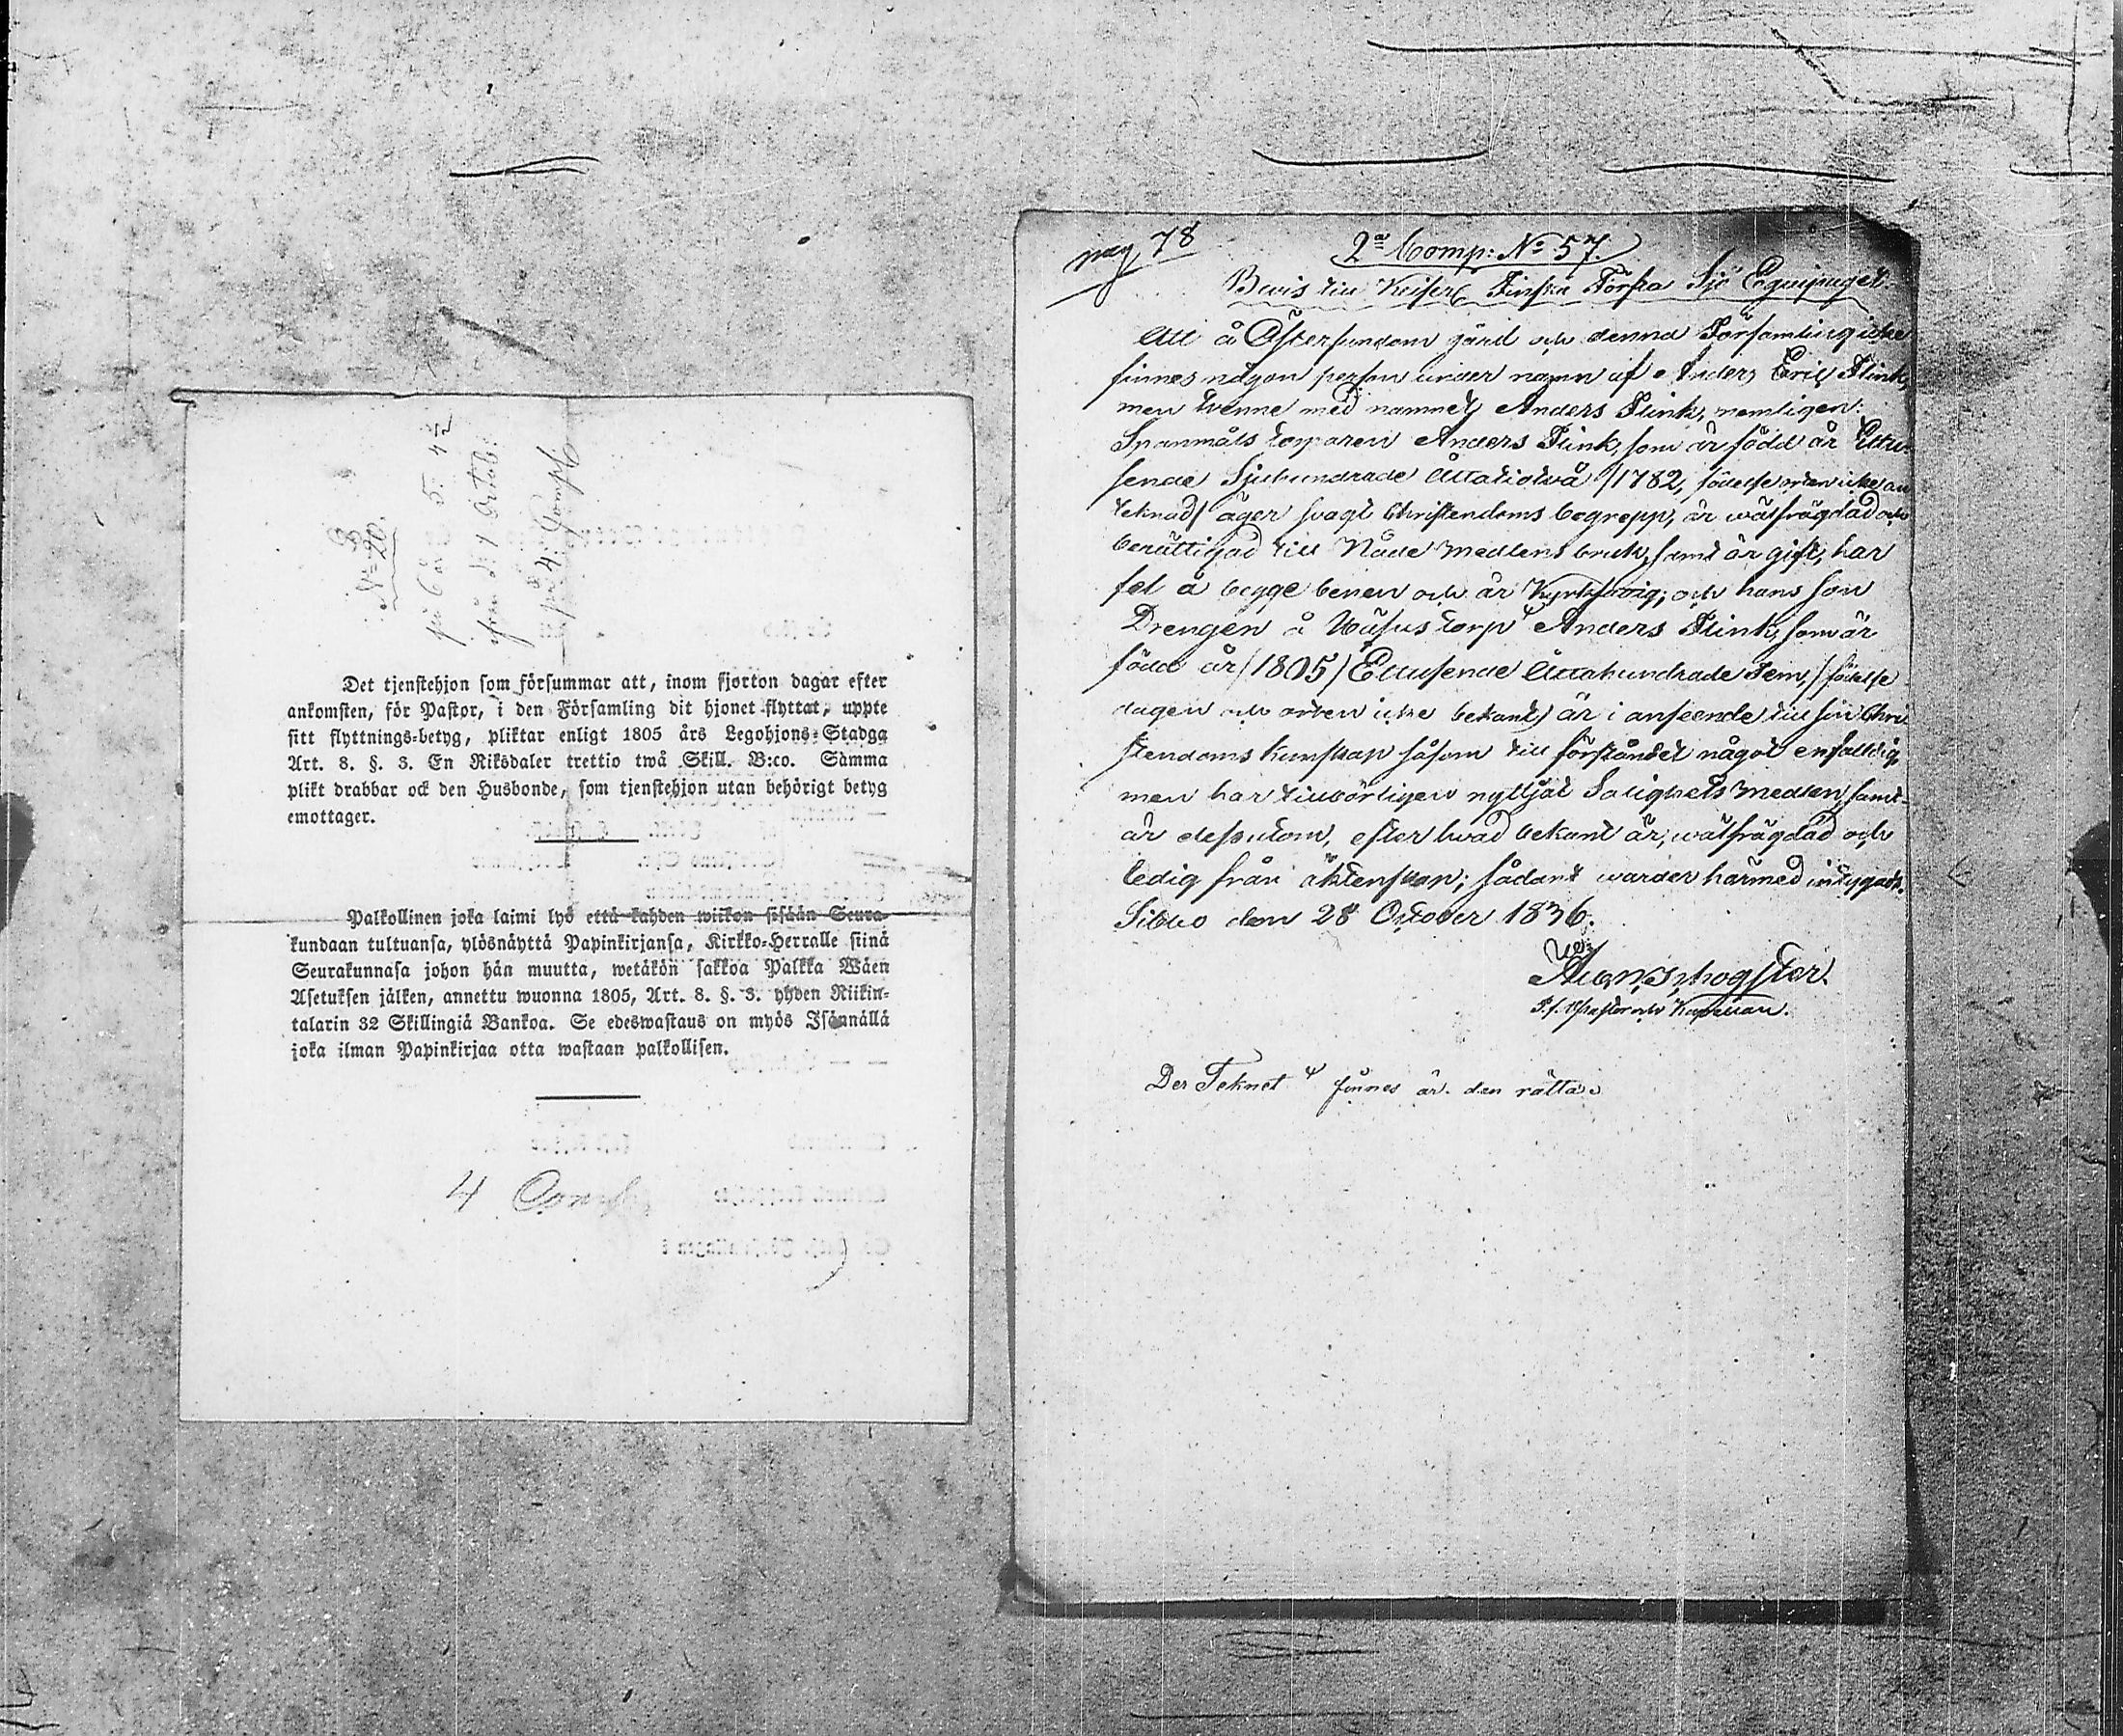 No 20.
på 6 år 5: 4½
ifrån d. 1 Octob:
på 4: Comp:
Det tjenstehjon som försummar att, inom fjorton dagar efter
ankomsten, för Pastor, i den Församling dit hjonet flyttat, uppte
sitt flyttnings-betyg, pliktar enligt 1805 års Legohjons-Stadga
Art. 8. §. 3. En Riksdaler trettio twå Skill. B:co. Samma
plikt drabbar ock den Husbonde, som tjenstehjon utan behörigt betyg
emottager.
Palkollinen joka laimi lyö että kahden wiikon sisään Seura-
kundaan tultuansa, ylösnäyttä Papinkirjansa, Kirkko-Herralle siinä
Seurakunnasa johon hän muutta, wetäkön sakkoa Palkka Wäen
Asetuksen jälken, annettu wuonna 1805, Art. 8. §. 3. yhden Riikin-
talarin 32 Skillingiä Bankoa. Se edeswastaus on myös Isännällä
joka ilman Papinkirjaa otta wastaan palkollisen.
4 Comp
pag 78
2a Comp: No 57.
Bevis till Keiserl Finska Första Sjö Equipaget.
Att å Östersundom gård och denna Församling icke
finnes någon person under namn af Anders Eric Flink,
men tvenne med namnet Anders Flink, nemligen:
Spanmåls torparen Anders Flink, som är född år Ettu-
sende Sjuhundrade Åttatiotvå /1782, födelse orten icke an
teknad/ äger svagt Christendoms begrepp, är wälfrägdad och
berättigad till Nåde Medlens bruk, samt är gift, har
fel å begge benen och är; och hans son
Drengen å torp Anders Flink, som är
född år /1805/ Ettusende Åttahundrade Fem, /födelse
dagen och orten icke bekant/ är i anseende till sin Chri
stendoms kunskap såsom till förståndet något enfaldig,
men har tillbörligen nyttjat Salighets Medlen, samt
är dessutom, efter hvad bekant är, wälfrägdad och
ledig från äktenskap; sådant warder härmed intygadt.
Sibbo den 28 October 1836.
T. f. Pastor och Kapellan.
Der Teknet finnes är den rätta